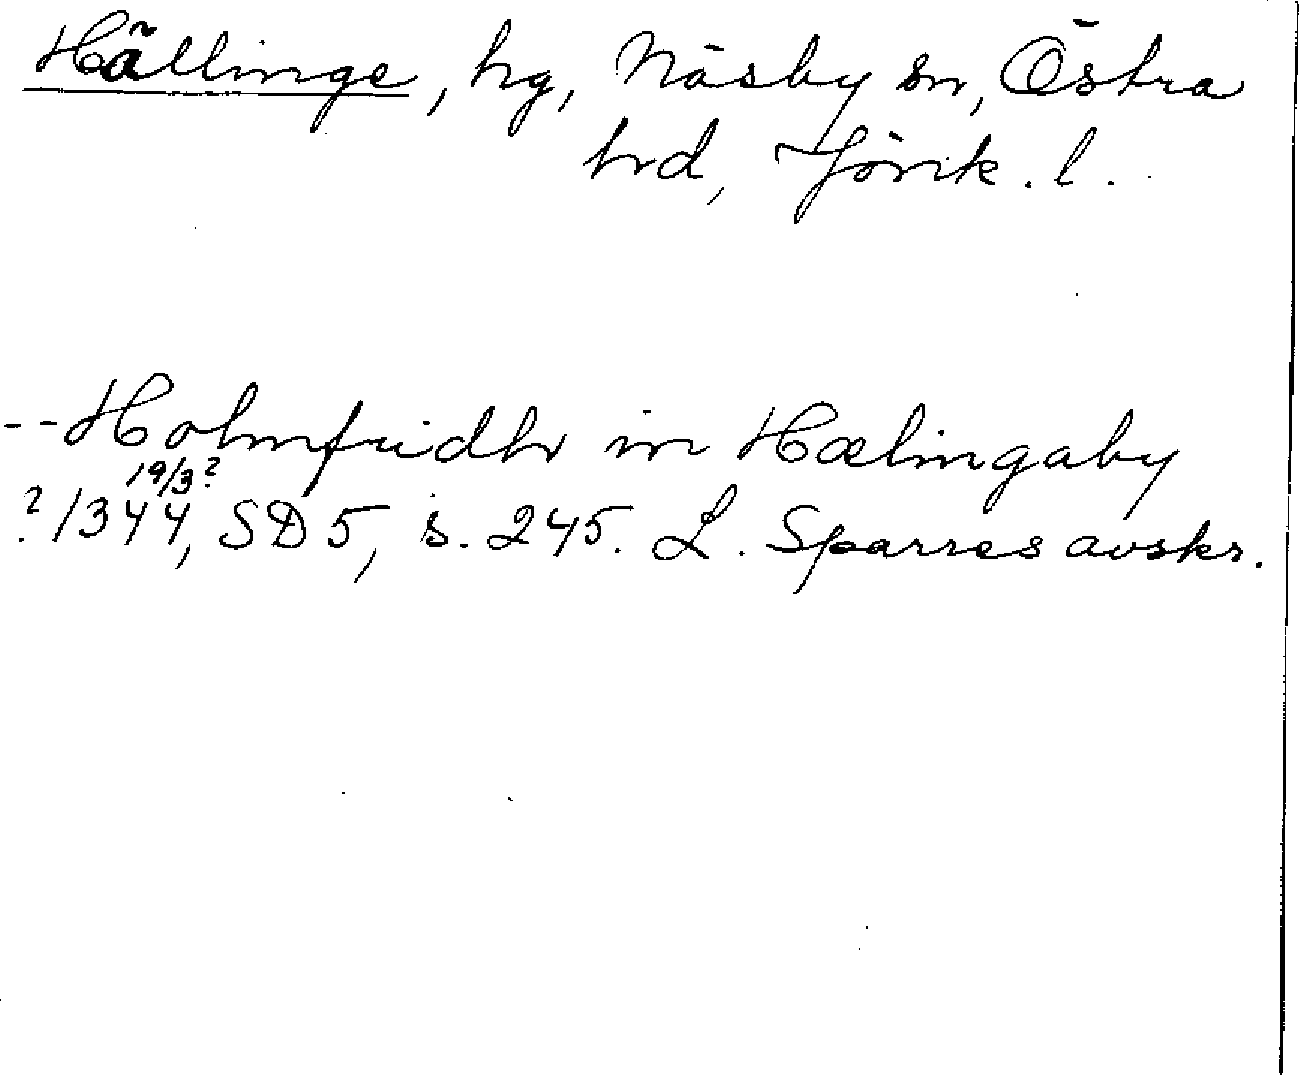 Hällinge, hg, Näsby sn, Östra
hrd, Jönk. l.
--Holmfridh in Hælingaby
19/3?
? 1344, SD 5, s. 245. L. Sparres avskr.